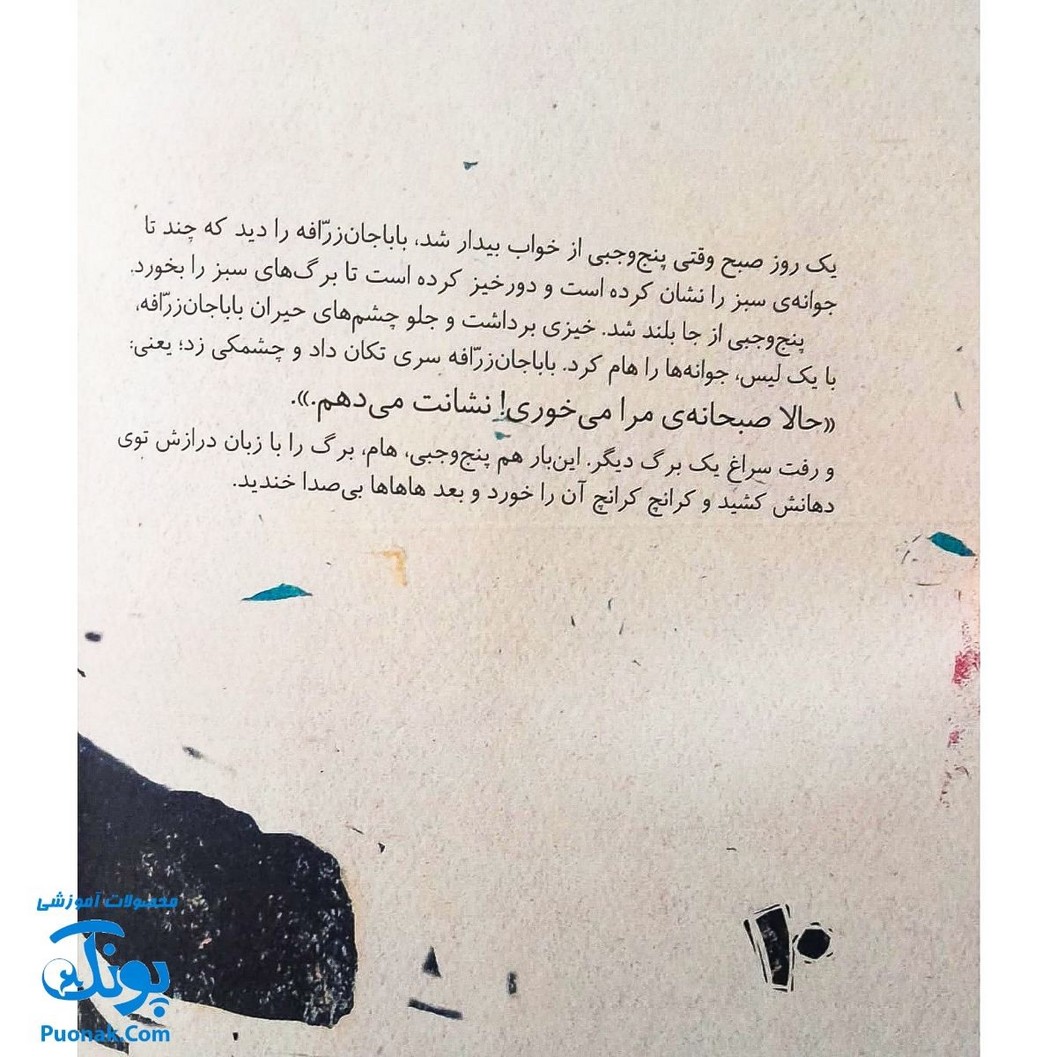 یک روز صبح وقتی پنج‌وجبی از خواب بیدار شد، باباجان‌زرّافه را دید که چند تا
جوانه‌ی سبز را نشان کرده است و دورخیز کرده است تا برگ‌های سبز را بخورد.
پنج‌وجبی از جا بلند شد. خیزی برداشت و جلو چشم‌های حیران باباجان‌زرّافه،
با یک لیس، جوانه‌ها را هام کرد. باباجان‌زرّافه سری تکان داد و چشمکی زد؛ یعنی:
«حالا صبحانه‌ی مرا می‌خوری! نشانت می‌دهم.».
و رفت سراغ یک برگ دیگر. این‌بار هم پنج‌وجبی، هام، برگ را با زبان درازش توی
دهانش کشید و کرانچ کرانچ آن را خورد و بعد هاهاها بی‌صدا خندید.
۱۰
محصولات آموزشی
پونک
Puonak.Com